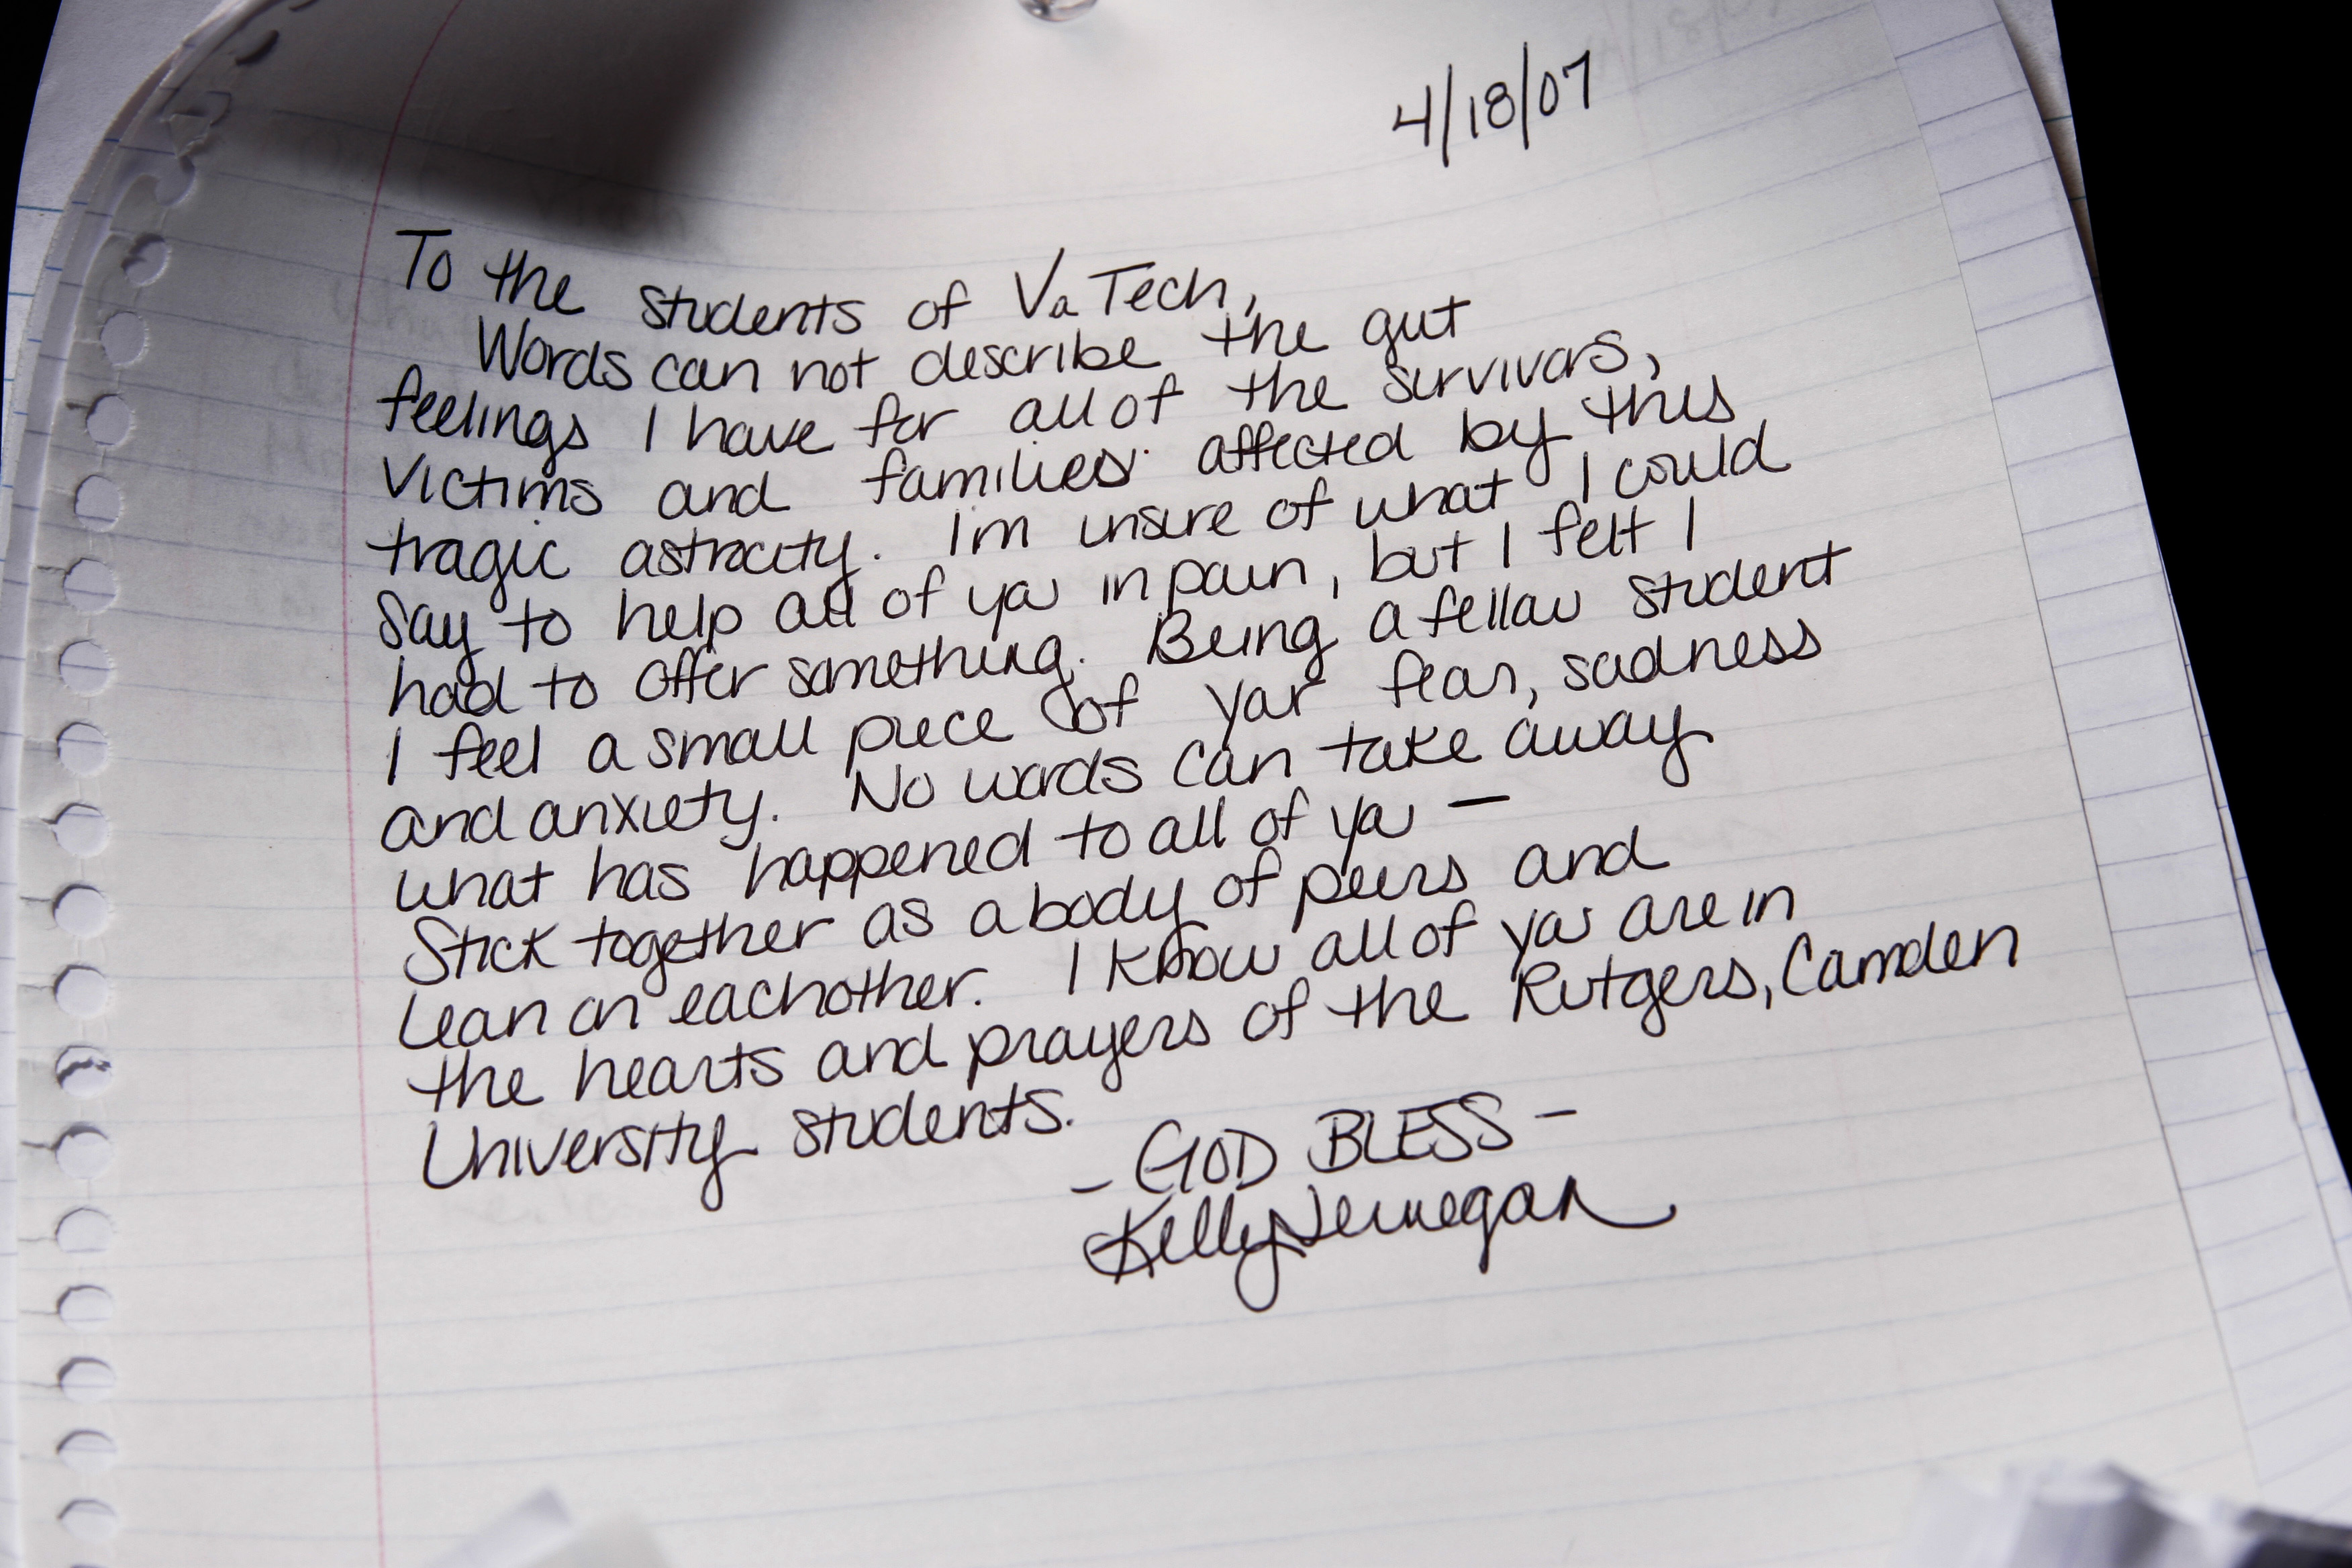 4/18/07
To the students of Va Tech,
Words can not describe the gut
feelings I have for all of the survivors,
victims and families affected by this
tragic astrocity. I'm unsure of what I could
say to help all of you in pain, but I felt I
had to offer something. Being a fellow student
I feel a small piece of your fear, sadness
and anxiety. No words can take away
what has happened to all of you —
Stick together as a body of peers and
Lean on eachother. I know all of you are in
the hearts and prayers of the Rutgers, Camden
University students.
- GOD BLESS -
Kelly